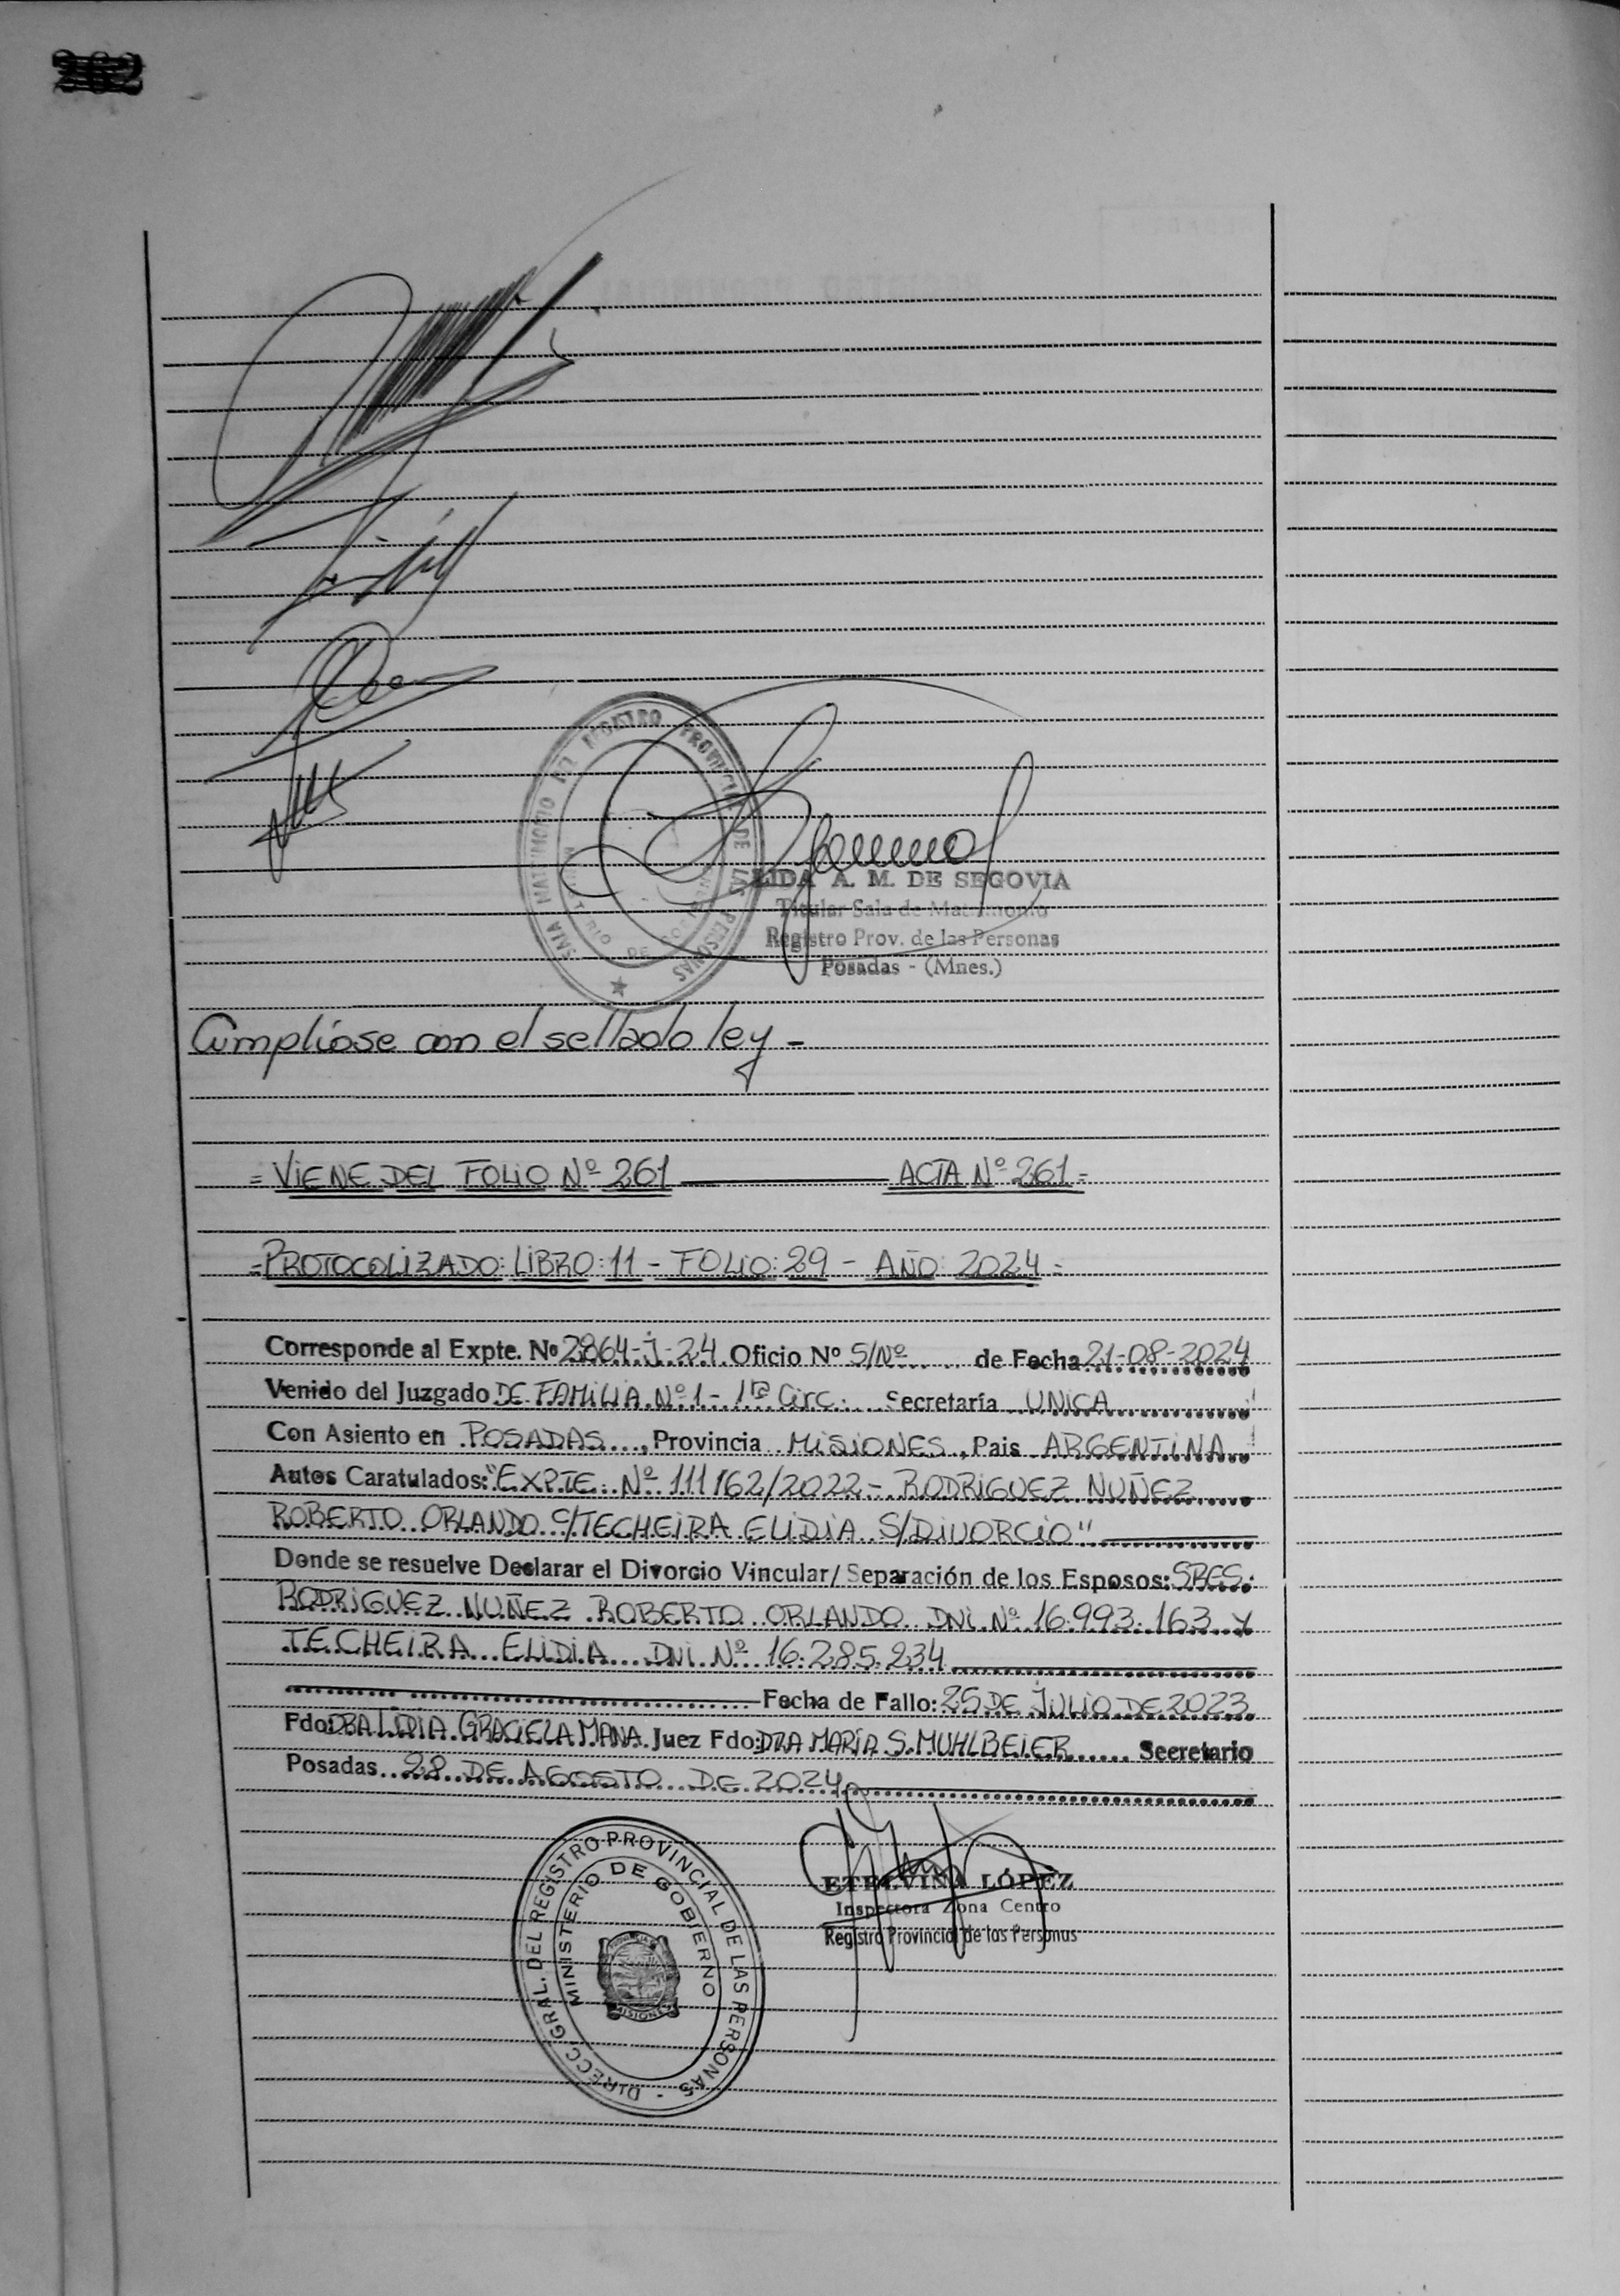 262
SALA MATRIMONIO DEL REGISTRO PROVINCIAL DE LAS PERSONAS
MINISTERIO DE GOBIERNO
LIDA A. M. DE SEGOVIA
Titular Sala de Matrimonio
Registro Prov. de las Personas
Posadas - (Mnes.)
Cumplióse con el sellado ley -
= VIENE DEL FOLIO Nº 261 ACTA Nº 261 =
= PROTOCOLIZADO: LIBRO: 11 - FOLIO: 29 - AÑO: 2024 =
Corresponde al Expte. Nº 2864-J-24 Oficio Nº S/Nº de Fecha 21-08-2024
Venido del Juzgado DE FAMILIA Nº 1 - 1ra Circ. Secretaría UNICA
Con Asiento en POSADAS, Provincia MISIONES, Pais ARGENTINA
Autos Caratulados: "EXPTE. Nº 111162/2022 - RODRIGUEZ NUÑEZ
ROBERTO ORLANDO C/ TECHEIRA ELIDIA S/ DIVORCIO"
Donde se resuelve Declarar el Divorcio Vincular/ Separación de los Esposos: SRES.
RODRIGUEZ NUÑEZ ROBERTO ORLANDO DNI Nº 16.993.163 Y
TECHEIRA ELIDIA DNI Nº 16.285.234
Fecha de Fallo: 25 DE JULIO DE 2023
Fdo: DRA LIDIA GRACIELA MANA Juez Fdo: DRA MARÍA S. MUHLBEIER Secretario
Posadas 28 DE AGOSTO DE 2024
DIRECC. GRAL. DEL REGISTRO PROVINCIAL DE LAS PERSONAS
MINISTERIO DE GOBIERNO
MISIONES
ETELVINA LÓPEZ
Inspectora Zona Centro
Registro Provincial de las Personas